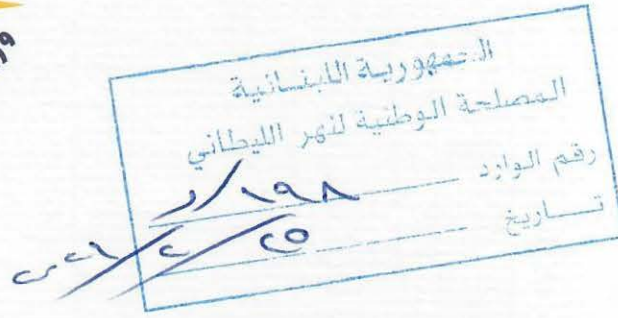 الجمهورية اللبنانية
المصلحة الوطنية لنهر الليطاني
رقم الوارد ١٩٨/د
تاريخ ٢٥/٢/٢٠٢٦